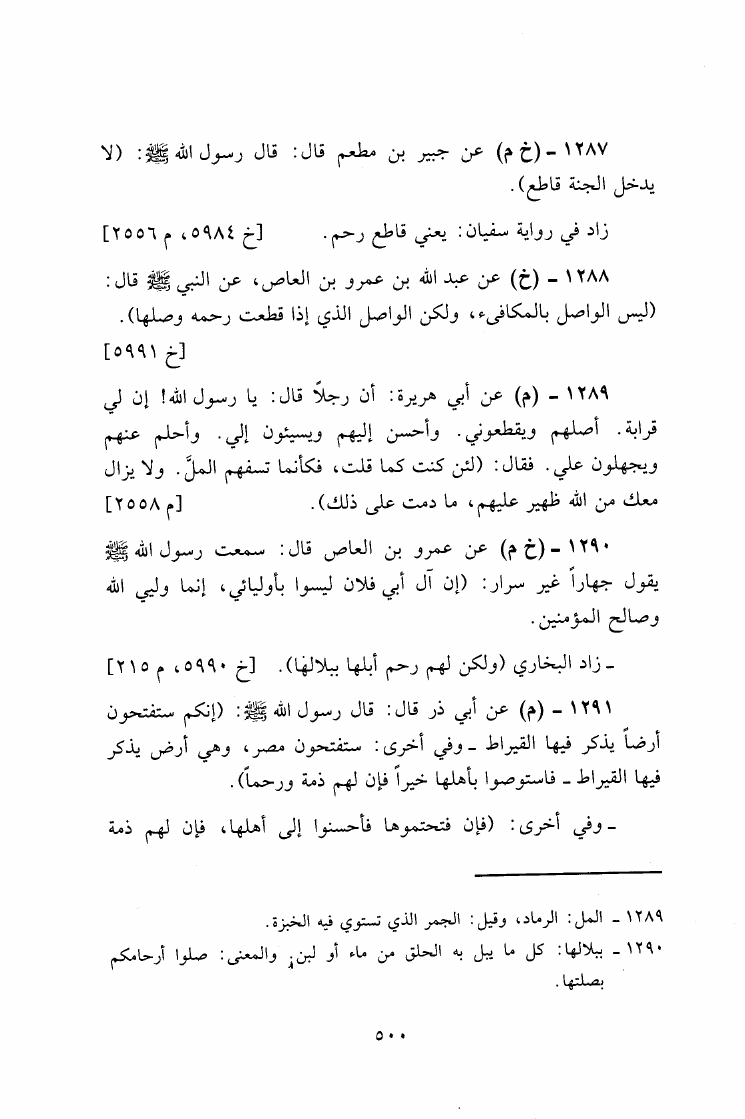 ١٢٨٧ - (خ م) عن جبير بن مطعم قال: قال رسول الله ﷺ: (لا
يدخل الجنة قاطع).
زاد في رواية سفيان: يعني قاطع رحم. [خ ٥٩٨٤، م ٢٥٥٦]
١٢٨٨ - (خ) عن عبد الله بن عمرو بن العاص، عن النبي ﷺ قال:
(ليس الواصل بالمكافىء، ولكن الواصل الذي إذا قطعت رحمه وصلها).
[خ ٥٩٩١]
١٢٨٩ - (م) عن أبي هريرة: أن رجلاً قال: يا رسول الله! إن لي
قرابة. أصلهم ويقطعوني. وأحسن إليهم ويسيئون إلي. وأحلم عنهم
ويجهلون علي. فقال: (لئن كنت كما قلت، فكأنما تسفهم الملَّ. ولا يزال
معك من الله ظهير عليهم، ما دمت على ذلك). [م ٢٥٥٨]
١٢٩٠ - (خ م) عن عمرو بن العاص قال: سمعت رسول الله ﷺ
يقول جهاراً غير سرار: (إن آل أبي فلان ليسوا بأوليائي، إنما وليي الله
وصالح المؤمنين.
- زاد البخاري (ولكن لهم رحم أبلها ببلالها). [خ ٥٩٩٠، م ٢١٥]
١٢٩١ - (م) عن أبي ذر قال: قال رسول الله ﷺ: (إنكم ستفتحون
أرضاً يذكر فيها القيراط - وفي أخرى: ستفتحون مصر، وهي أرض يذكر
فيها القيراط - فاستوصوا بأهلها خيراً فإن لهم ذمة ورحماً).
- وفي أخرى: (فإن فتحتموها فأحسنوا إلى أهلها، فإن لهم ذمة
١٢٨٩ - المل: الرماد، وقيل: الجمر الذي تستوي فيه الخبزة.
١٢٩٠ - ببلالها: كل ما يبل به الحلق من ماء أو لبن. والمعنى: صلوا أرحامكم
بصلتها.
٥٠٠